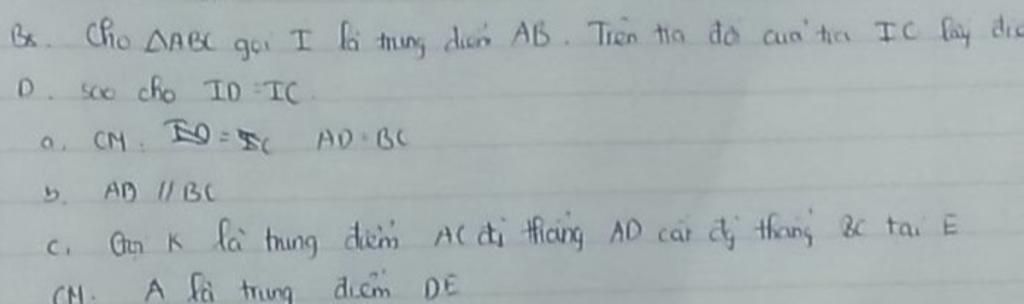 Cho ΔABC gọi I là trung điểm AB. Trên tia đối của tia IC lấy
D. sao cho ID=IC
a. CM: AD=BC
b. AD // BC
c. Gọi K là trung điểm AC đt thẳng AD cắt đg thẳng BC tại E
CM. A là trung điểm DE